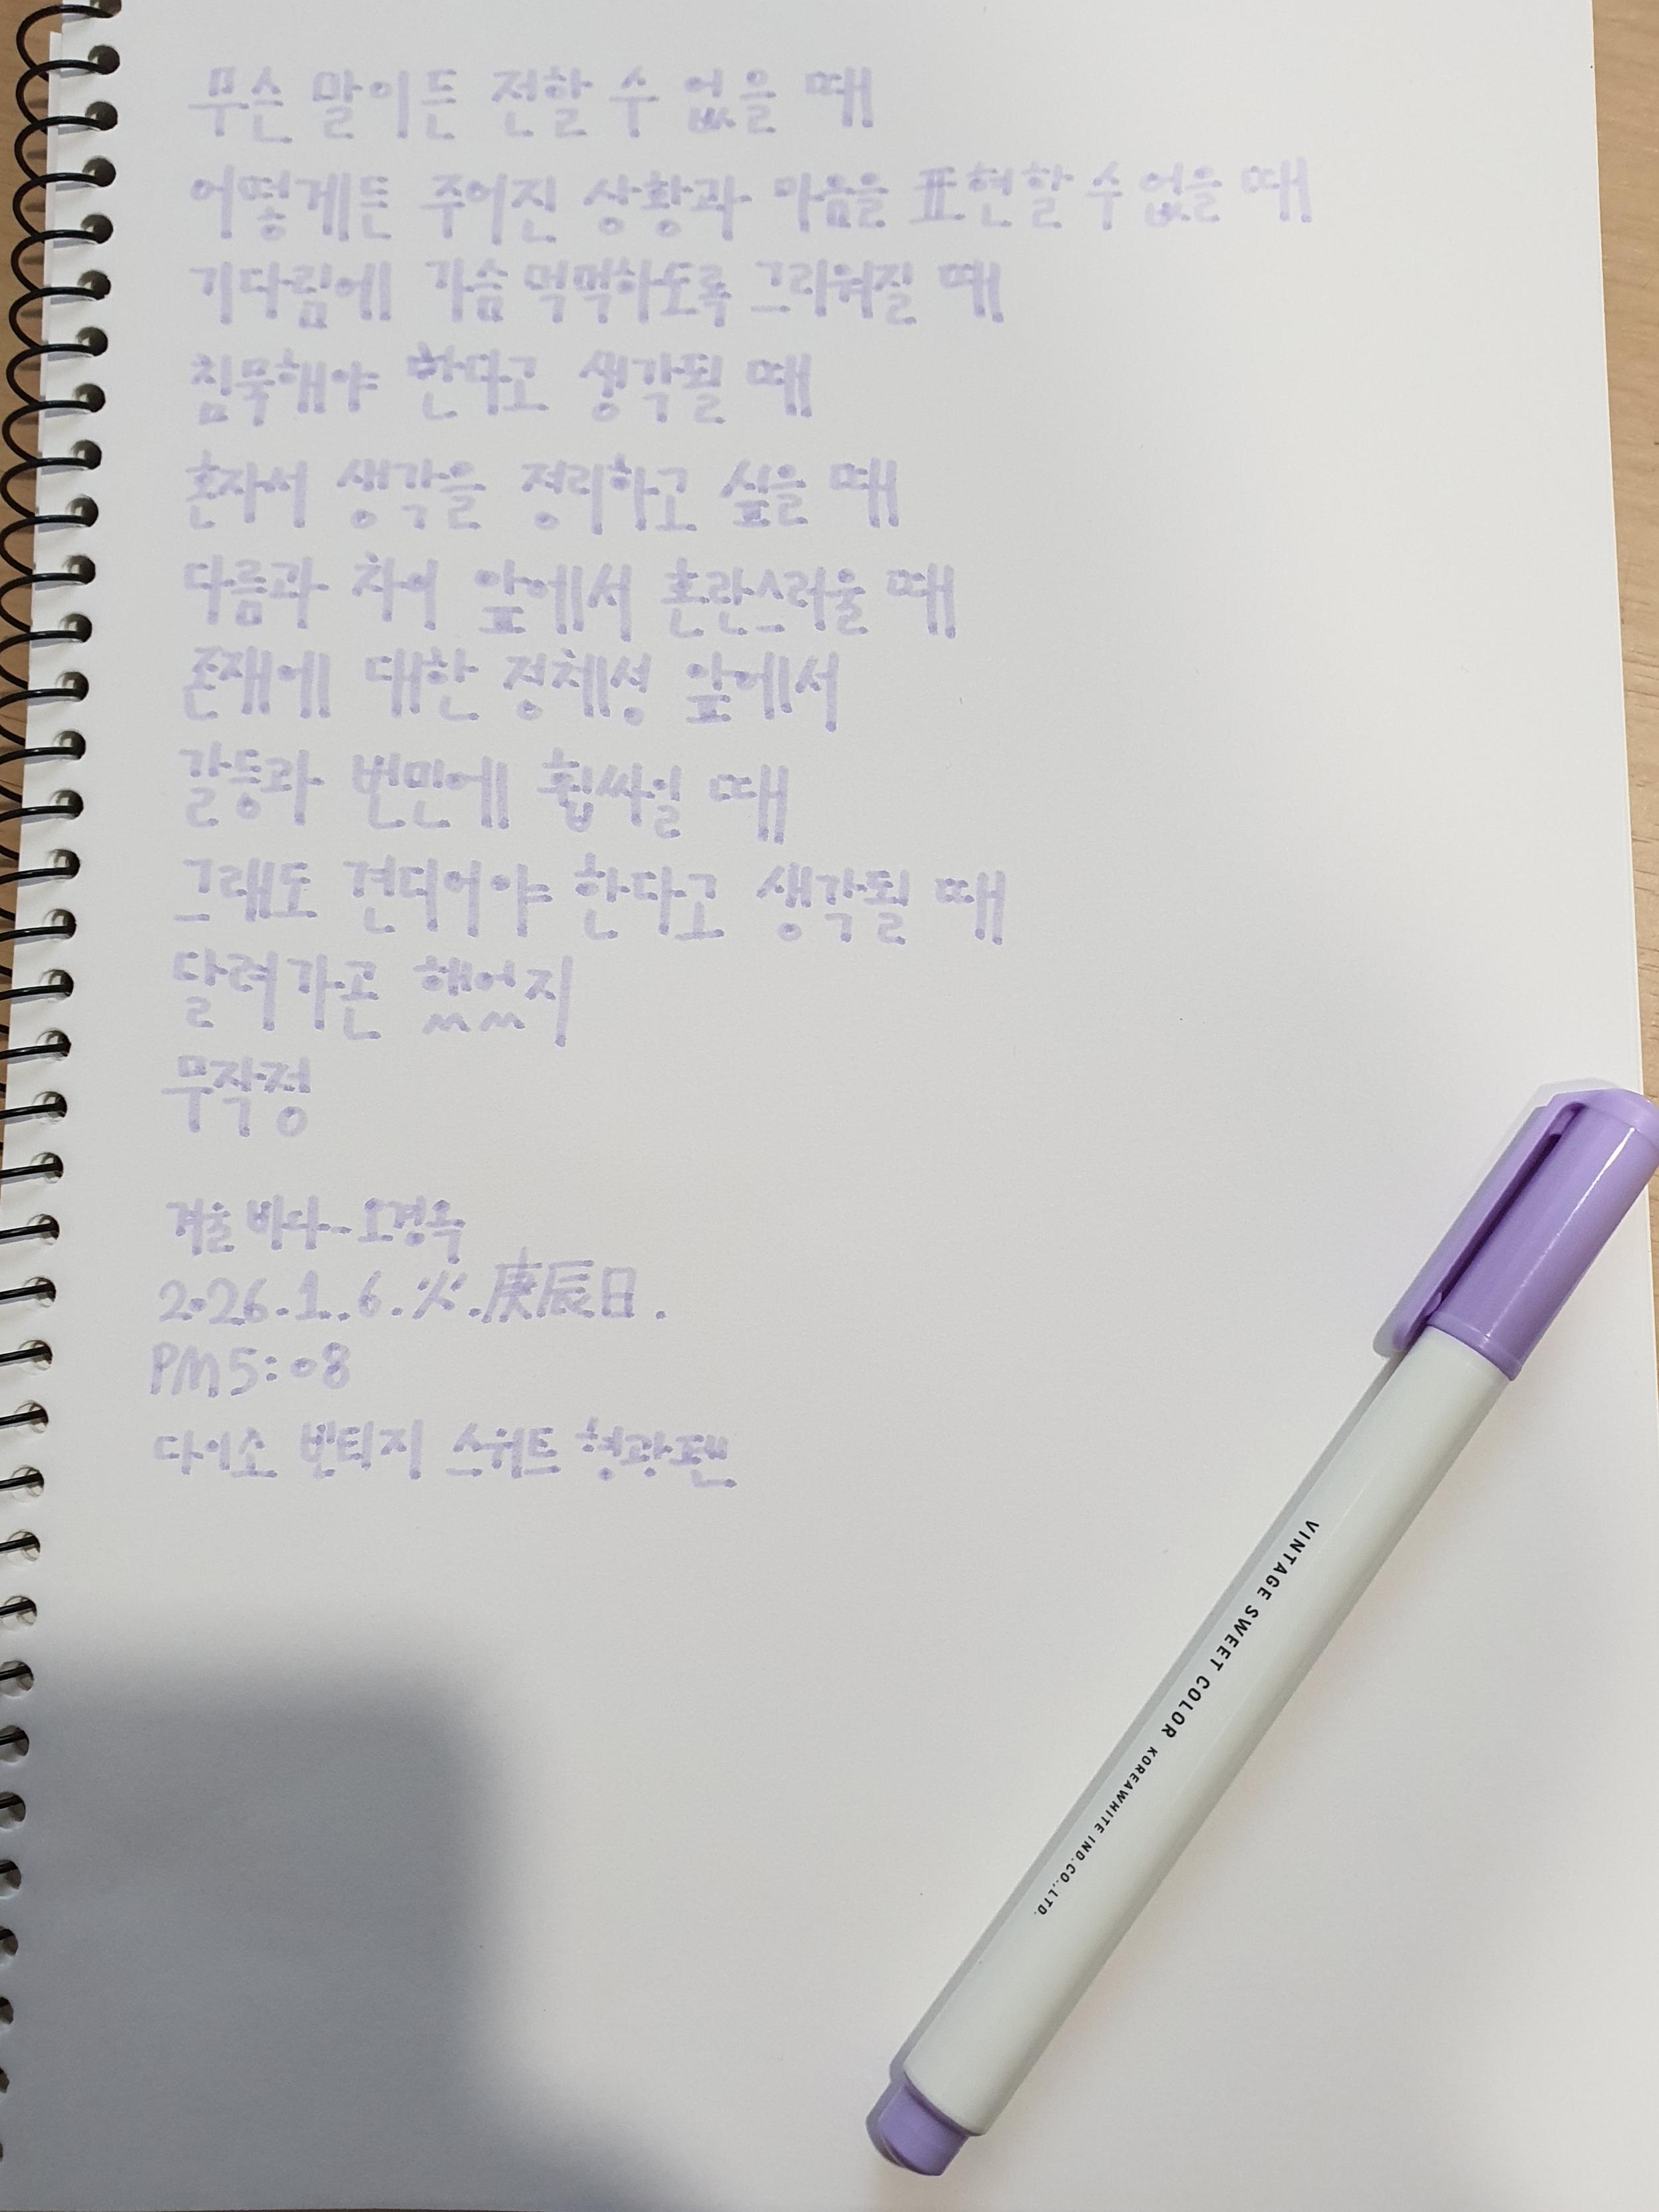 무슨 말이든 전할 수 없을 때
어떻게든 주어진 상황과 마음을 표현할 수 없을 때
기다림에 가슴 먹먹하도록 그리워질 때
침묵해야 한다고 생각될 때
혼자서 생각을 정리하고 싶을 때
다름과 차이 앞에서 혼란스러울 때
존재에 대한 정체성 앞에서
갈등과 번민에 휩싸일 때
그래도 견디어야 한다고 생각될 때
달려가곤 했었지
무작정
겨울 바다-오경옥
2026.1.6.火.庚辰日.
PM5:08
다이소 빈티지 스위트 형광펜
VINTAGE SWEET COLOR KOREAWHITE IND.CO.,LTD.